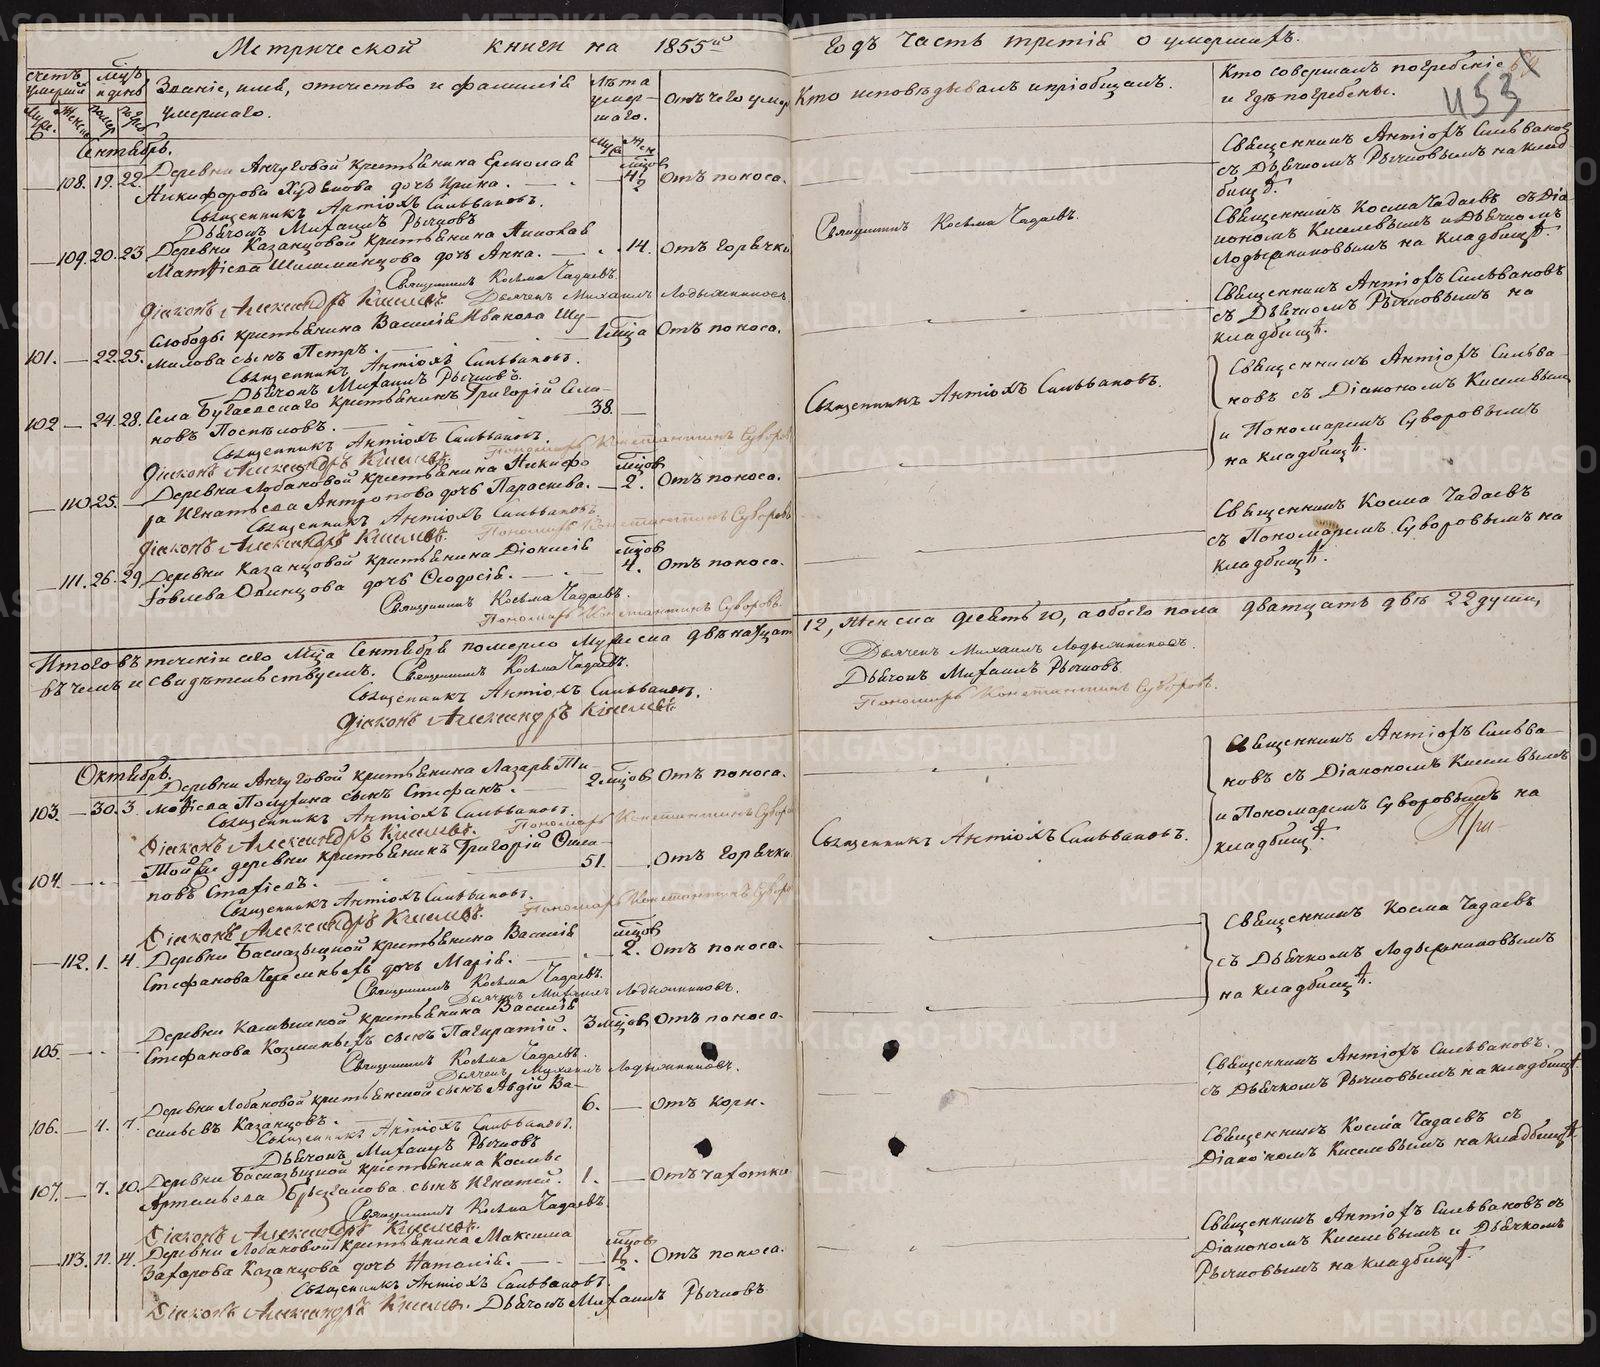 Метрической книги на 1855й
Счетъ умершихъ
Мѣсяцъ и день
Званіе, имя, отчество и фамилія умершаго.
Лѣта умершаго.
Отъ чего умеръ
Сентябрь.
108. 19. 22. Деревни Анчуговой крестьянина Ермолая
Никифорова Худякова дочь Ирина. Отъ поноса.
Священникъ Антіохъ Сильвановъ.
Дьячокъ Михаилъ Рычковъ
109. 20. 23 Деревни Казанцовой крестьянина Николая
Матѳіева Шишминцова дочь Анна. 14. Отъ горячки
Священникъ Косьма Чадаевъ.
Діаконъ Александръ Киселевъ. Дьячекъ Михаилъ Ладыжниковъ
101. 22. 25. Слободы крестьянина Василія Иванова Шу-
милова сынъ Петръ. 1 мца Отъ поноса.
Священникъ Антіохъ Сильвановъ.
Дьячокъ Михаилъ Рычковъ.
102 24. 28. Села Бугаевскаго крестьянинъ Григорій Сема-
новъ Поспѣловъ. 38.
Священникъ Антіохъ Сильвановъ.
Діаконъ Александръ Киселевъ. Пономарь Константинъ Суворовъ
110 25. Деревни Лобановой крестьянина Никифо
ра Игнатьева Антропова дочь Параскева. мцов 2. Отъ поноса.
Священникъ Антіохъ Сильвановъ
Діаконъ Александръ Киселевъ. Пономарь Константинъ Суворовъ
111. 26. 29 Деревни Казанцовой крестьянина Діонисія
Іовлева Окинцова дочь Ѳеодосія. мцов 4. Отъ поноса.
Священникъ Косьма Чадаевъ.
Пономарь Константинъ Суворовъ.
Итого въ теченіи сего Мца Сентября померло Мужеска двѣнадцать
въ чемъ и свидѣтельствуемъ. Священникъ Косьма Чадаевъ.
Священникъ Антіохъ Сильвановъ.
Діаконъ Александръ Киселевъ.
Октябрь.
103. 30. 3. Деревни Анчуговой крестьянина Лазаря Ти-
моѳіева Полухина сынъ Стефанъ. 2 мцов Отъ поноса.
Священникъ Антіохъ Сильвановъ.
Діаконъ Александръ Киселевъ. Пономарь Константинъ Суворовъ
104. Той же деревни крестьянинъ Григорій Осипа-
новъ 51. Отъ горячки
Священникъ Антіохъ Сильвановъ.
Діаконъ Александръ Киселевъ. Пономарь Константинъ Суворовъ
112. 1. 4. Деревни Басказыцкой крестьянина Василія
Стефанова дочь Марія. мцов 2. Отъ поноса.
Священникъ Косьма Чадаевъ.
Дьячекъ Михаилъ Ладыжниковъ.
105. Деревни крестьянина Василія
Стефанова Козминыхъ сынъ Панкратій. 3 мцов Отъ поноса.
Священникъ Косьма Чадаевъ.
Дьячекъ Михаилъ Ладыжниковъ.
106. 4. 7. Деревни Лобановой крестьянской сынъ Авдій Ва-
сильевъ Казанцовъ. 6. Отъ кори.
Священникъ Антіохъ Сильвановъ.
Дьячокъ Михаилъ Рычковъ
107. 7. 10. Деревни Басказыцкой крестьянина Космы
Артемьева Брызгалова сынъ Игнатій. 1. Отъ чахотки
Священникъ Косьма Чадаевъ.
Діаконъ Александръ Киселевъ.
113. 11. 14. Деревни Лобановой крестьянина Максима
Захарова Казанцова дочь Наталія. Отъ поноса.
Священникъ Антіохъ Сильвановъ.
Діаконъ Александръ Киселевъ. Дьячокъ Михаилъ Рычковъ
Годъ часть третія о умершихъ.
Кто исповѣдывалъ и пріобщалъ.
Кто совершалъ погребеніе
и гдѣ погребены.
453
Священникъ Антіохъ Сильвановъ
съ Дьячкомъ Рычковымъ на клад-
бищѣ.
Священникъ Косьма Чадаевъ.
Священникъ Косма Чадаевъ съ Діа-
кономъ Киселевымъ и Дьячкомъ
Ладыжниковымъ на кладбищѣ.
Священникъ Антіохъ Сильвановъ
съ Дьячкомъ Рычковымъ на
кладбищѣ.
Священникъ Антіохъ Сильвановъ.
Священникъ Антіохъ Сильва-
новъ съ Діакономъ Киселевымъ
и Пономаремъ Суворовымъ
на кладбищѣ.
Священникъ Косма Чадаевъ
съ Пономаремъ Суворовымъ на
кладбищѣ.
12, Женска десять 10, а обоего пола дватцать двѣ 22 души,
Дьячекъ Михаилъ Ладыжниковъ.
Дьячокъ Михаилъ Рычковъ
Пономарь Константинъ Суворовъ.
Священникъ Антіохъ Сильва-
новъ съ Діакономъ Киселевымъ
и Пономаремъ Суворовымъ на
кладбищѣ.
Священникъ Антіохъ Сильвановъ.
Священникъ Косма Чадаевъ
съ Дьячкомъ Ладыжниковымъ
на кладбищѣ.
Священникъ Антіохъ Сильвановъ.
съ Дьячкомъ Рычковымъ на кладбищѣ.
Священникъ Косма Чадаевъ съ
Діакономъ Киселевымъ на кладбищѣ
Священникъ Антіохъ Сильвановъ съ
Діакономъ Киселевымъ и Дьячкомъ
Рычковымъ на кладбищѣ.
METRIKI.GASO-URAL.RU